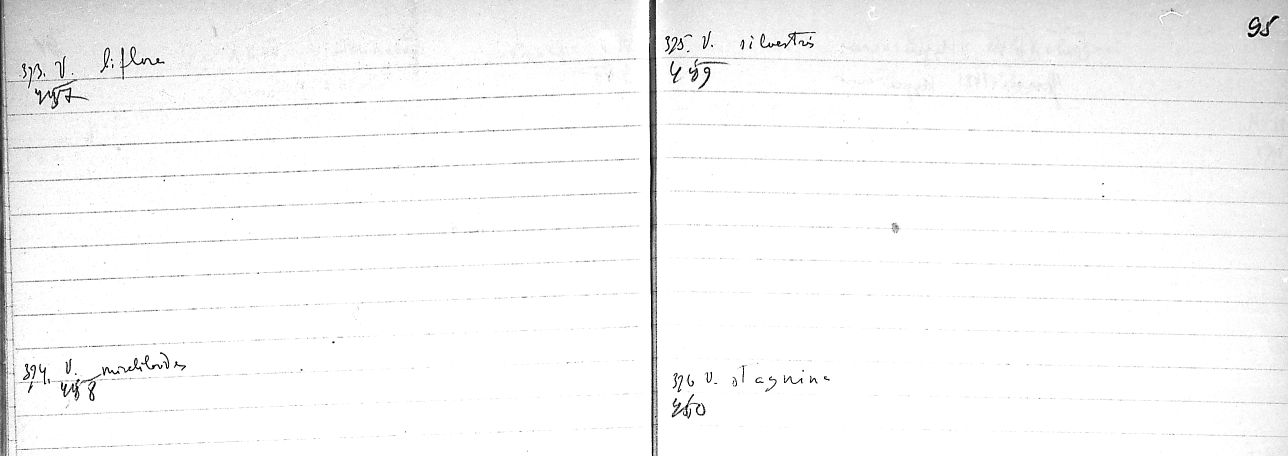 373. V. biflora
457
374. V.
458
95
375. V. silvestris
459
376 V. stagnina
460